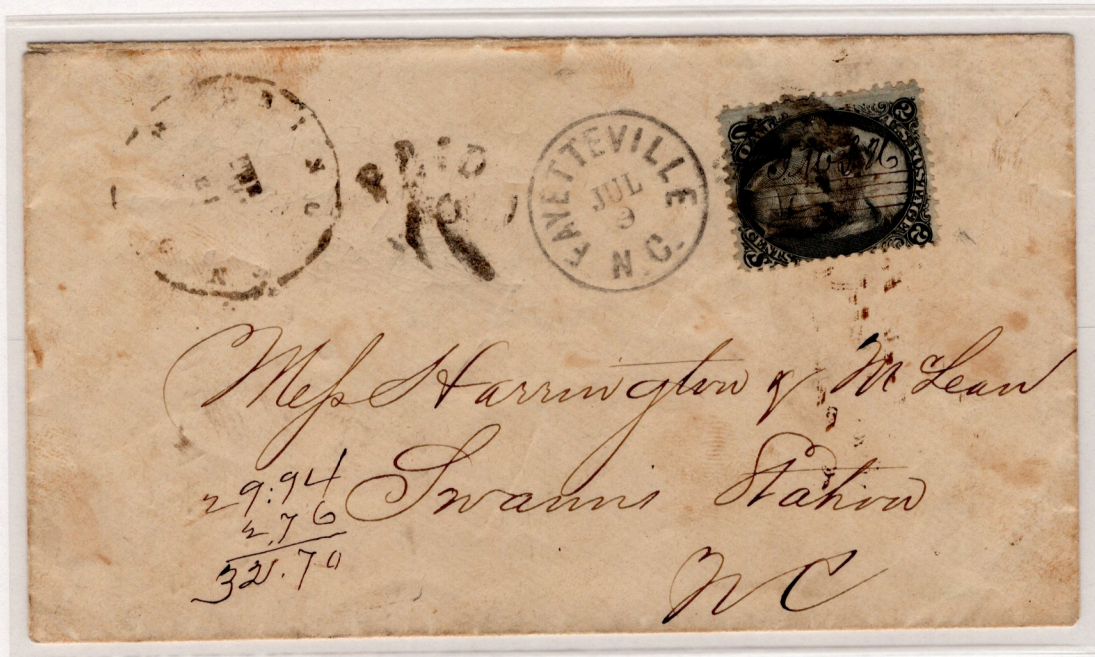 PAID
FAYETTEVILLE
JUL
9
N.C.
2
2
Mess Harrington & McLean
Swanns Station
N C
29.94
2.76
32.70